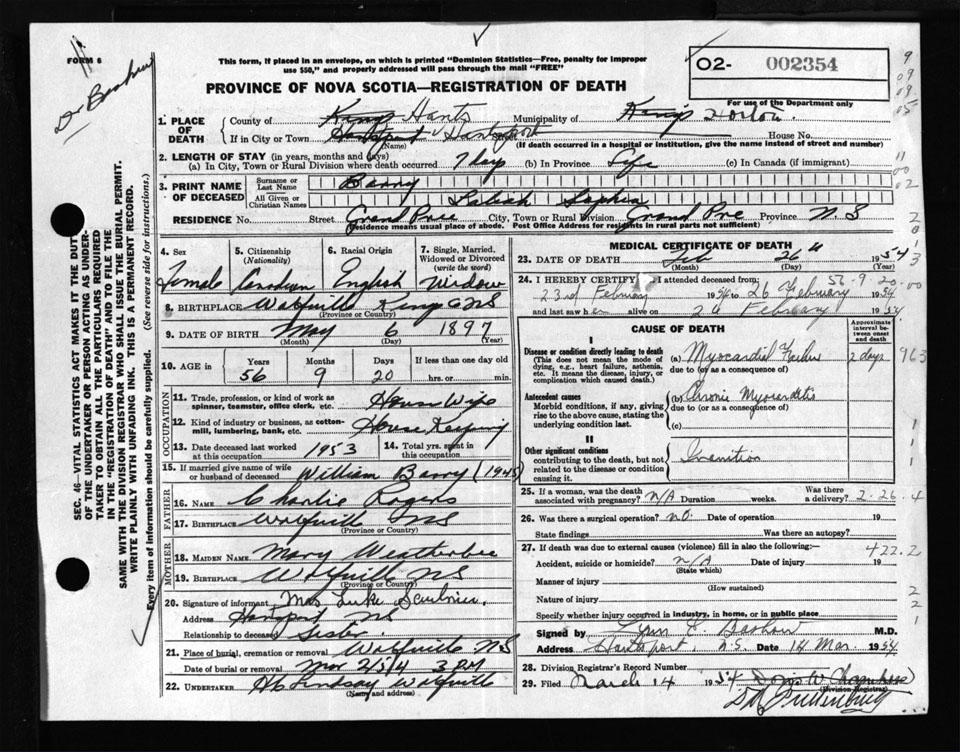 FORM 6
Dr Bashow
This form, if placed in an envelope, on which is printed "Dominion Statistics—Free, penalty for improper
use $50," and properly addressed will pass through the mail "FREE"
PROVINCE OF NOVA SCOTIA—REGISTRATION OF DEATH
O2- 002354
For use of the Department only
1. PLACE OF DEATH
County of Kings Hants Municipality of Kings Horton
If in City or Town Hantsport Hantsport Street House No.
(Name) (If death occurred in a hospital or institution, give the name instead of street and number)
2. LENGTH OF STAY (in years, months and days)
(a) In City, Town or Rural Division where death occurred 7 days (b) In Province Life (c) In Canada (if immigrant)
3. PRINT NAME OF DECEASED
Surname or Last Name Barry
All Given or Christian Names Sophia
RESIDENCE No. Street Grand Pre City, Town or Rural Division Grand Pre Province N S
(Residence means usual place of abode. Post Office Address for residents in rural parts not sufficient)
4. Sex Female
5. Citizenship (Nationality) Canadian
6. Racial Origin English
7. Single, Married, Widowed or Divorced (write the word) Widow
8. BIRTHPLACE Wolfville Kings Co NS
(Province or Country)
9. DATE OF BIRTH May 6 1897
(Month) (Day) (Year)
10. AGE in Years Months Days If less than one day old
56 9 20 hrs. or min.
OCCUPATION
11. Trade, profession, or kind of work as spinner, teamster, office clerk, etc. House Wife
12. Kind of industry or business, as cotton-mill, lumbering, bank, etc. House Keeping
13. Date deceased last worked at this occupation 1953
14. Total yrs. spent in this occupation
15. If married give name of wife or husband of deceased William Barry (1945)
FATHER
16. NAME Charlie Rogers
17. BIRTHPLACE Wolfville NS
(Province or Country)
MOTHER
18. MAIDEN NAME Mary Weatherbee
19. BIRTHPLACE Wolfville NS
(Province or Country)
20. Signature of informant Mrs Luke
Address Hantsport NS
Relationship to deceased Sister
21. Place of burial, cremation or removal Wolfville N.S
Date of burial or removal Mar 2/54 3 PM
22. UNDERTAKER H Lindsay Wolfville
(Name and address)
MEDICAL CERTIFICATE OF DEATH
23. DATE OF DEATH Feb 26 1954
(Month) (Day) (Year)
24. I HEREBY CERTIFY I attended deceased from:
23rd February 1954 to 26 February 1954
and last saw her alive on 26 February 1954
CAUSE OF DEATH
Approximate interval between onset and death
I
Disease or condition directly leading to death
(This does not mean the mode of dying, e.g., heart failure, asthenia, etc. It means the disease, injury, or complication which caused death.)
(a) Myocardial Failure 2 days 963
due to (or as a consequence of)
Antecedent causes
Morbid conditions, if any, giving rise to the above cause, stating the underlying condition last.
(b) Chronic Myocarditis
due to (or as a consequence of)
(c)
II
Other significant conditions
contributing to the death, but not related to the disease or condition causing it.
Inanition
25. If a woman, was the death associated with pregnancy? N/A Duration weeks. Was there a delivery? 2-26-4
26. Was there a surgical operation? no. Date of operation 19
State findings Was there an autopsy?
27. If death was due to external causes (violence) fill in also the following:— 422.2
Accident, suicide or homicide? N/A Date of injury 19
(State which)
Manner of injury
(How sustained)
Nature of injury
Specify whether injury occurred in industry, in home, or in public place
Signed by Lynn E. Bashow M.D.
Address Hantsport, N.S. Date 14 Mar. 1954
28. Division Registrar's Record Number
29. Filed March 14 1954
(Division Registrar)
SEC. 46—VITAL STATISTICS ACT MAKES IT THE DUTY
OF THE UNDERTAKER OR PERSON ACTING AS UNDER-
TAKER TO OBTAIN ALL THE PARTICULARS REQUIRED
IN THE "REGISTRATION OF DEATH" AND TO FILE THE
SAME WITH THE DIVISION REGISTRAR WHO SHALL ISSUE THE BURIAL PERMIT.
WRITE PLAINLY WITH UNFADING INK. THIS IS A PERMANENT RECORD.
Every item of information should be carefully supplied. (See reverse side for instructions.)